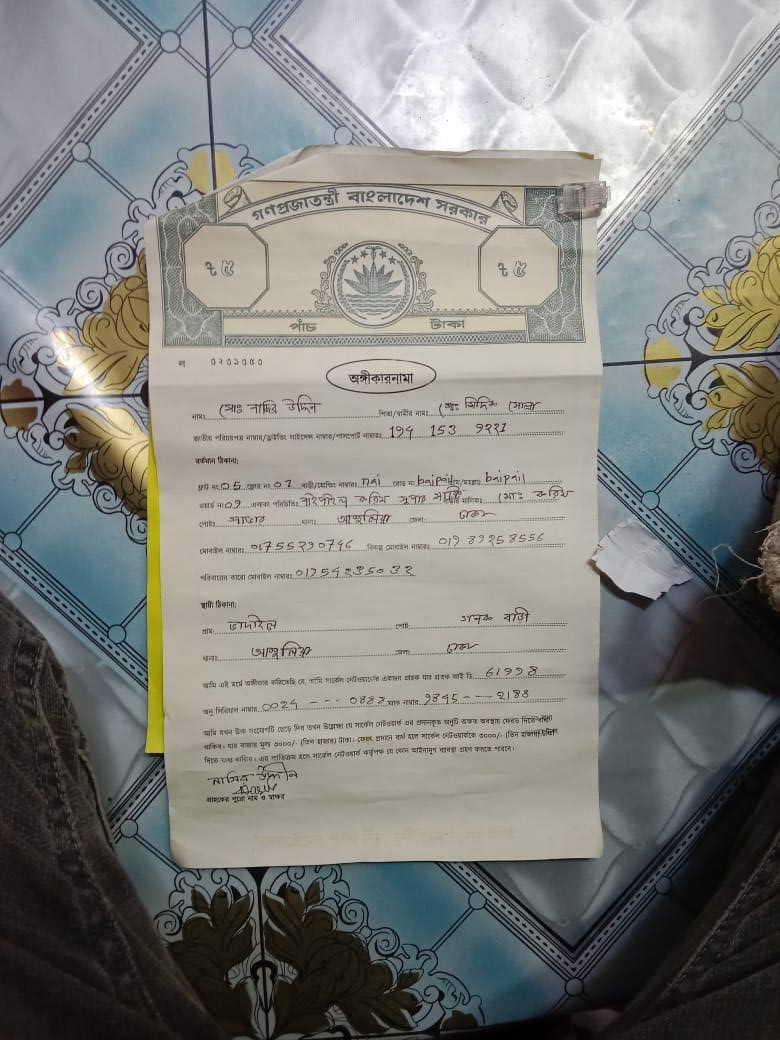 গণপ্রজাতন্ত্রী বাংলাদেশ সরকার
৳ ৫ ৳ ৫
পাঁচ টাকা
০২০১০৫০
অঙ্গীকারনামা
নামঃ মোঃ নাসির উদ্দিন পিতা/স্বামীর নামঃ মোঃ সিদ্দিক মোল্লা
জাতীয় পরিচয়পত্র নাম্বার/ড্রাইভিং লাইসেন্স নাম্বার/পাসপোর্ট নাম্বারঃ 194 153
বর্তমান ঠিকানা:
ফ্লাট নং 05 ফ্লোর নং 02 বাড়ী/হোল্ডিং নাম্বারঃ nai রোড নং baipail baipail
ওয়ার্ড নং 09 এলাকা পরিচিতিঃ করিম সুপার মোঃ করিম
পোষ্টঃ সাভার থানাঃ আশুলিয়া জেলা: ঢাকা
মোবাইল নাম্বারঃ বিকল্প মোবাইল নাম্বারঃ
পরিবারের কারো মোবাইল নাম্বারঃ
স্থায়ী ঠিকানা:
গ্রাম: ভাদাইল পোষ্ট: গনক বাড়ী
থানাঃ আশুলিয়া জেলা: ঢাকা
আমি এই মর্মে অঙ্গীকার করিতেছি যে, আমি সার্কেল নেটওয়ার্কের একজন গ্রাহক যার গ্রাহক আই ডি
অনু সিরিয়াল নাম্বার 0024 --- ম্যাক নাম্বার ---
আমি যখন উক্ত সংযোগটি ছেড়ে দিব তখন উল্লেখ্য যে সার্কেল নেটওয়ার্ক এর প্রদানকৃত অনুটি অক্ষত অবস্থায় ফেরত দিতে
থাকিব। যার বাজার মূল্য ৩০০০/- (তিন হাজার) টাকা। ফেরৎ প্রদানে ব্যর্থ হলে সার্কেল নেটওয়ার্ককে ৩০০০/- (তিন হাজার) টাকা
দিতে বাধ্য থাকিব। এর ব্যতিক্রম হলে সার্কেল নেটওয়ার্ক কর্তৃপক্ষ যে কোন আইনানুগ ব্যবস্থা গ্রহণ করতে পারবে।
নাসির উদ্দিন
গ্রাহকের পুরো নাম ও স্বাক্ষর